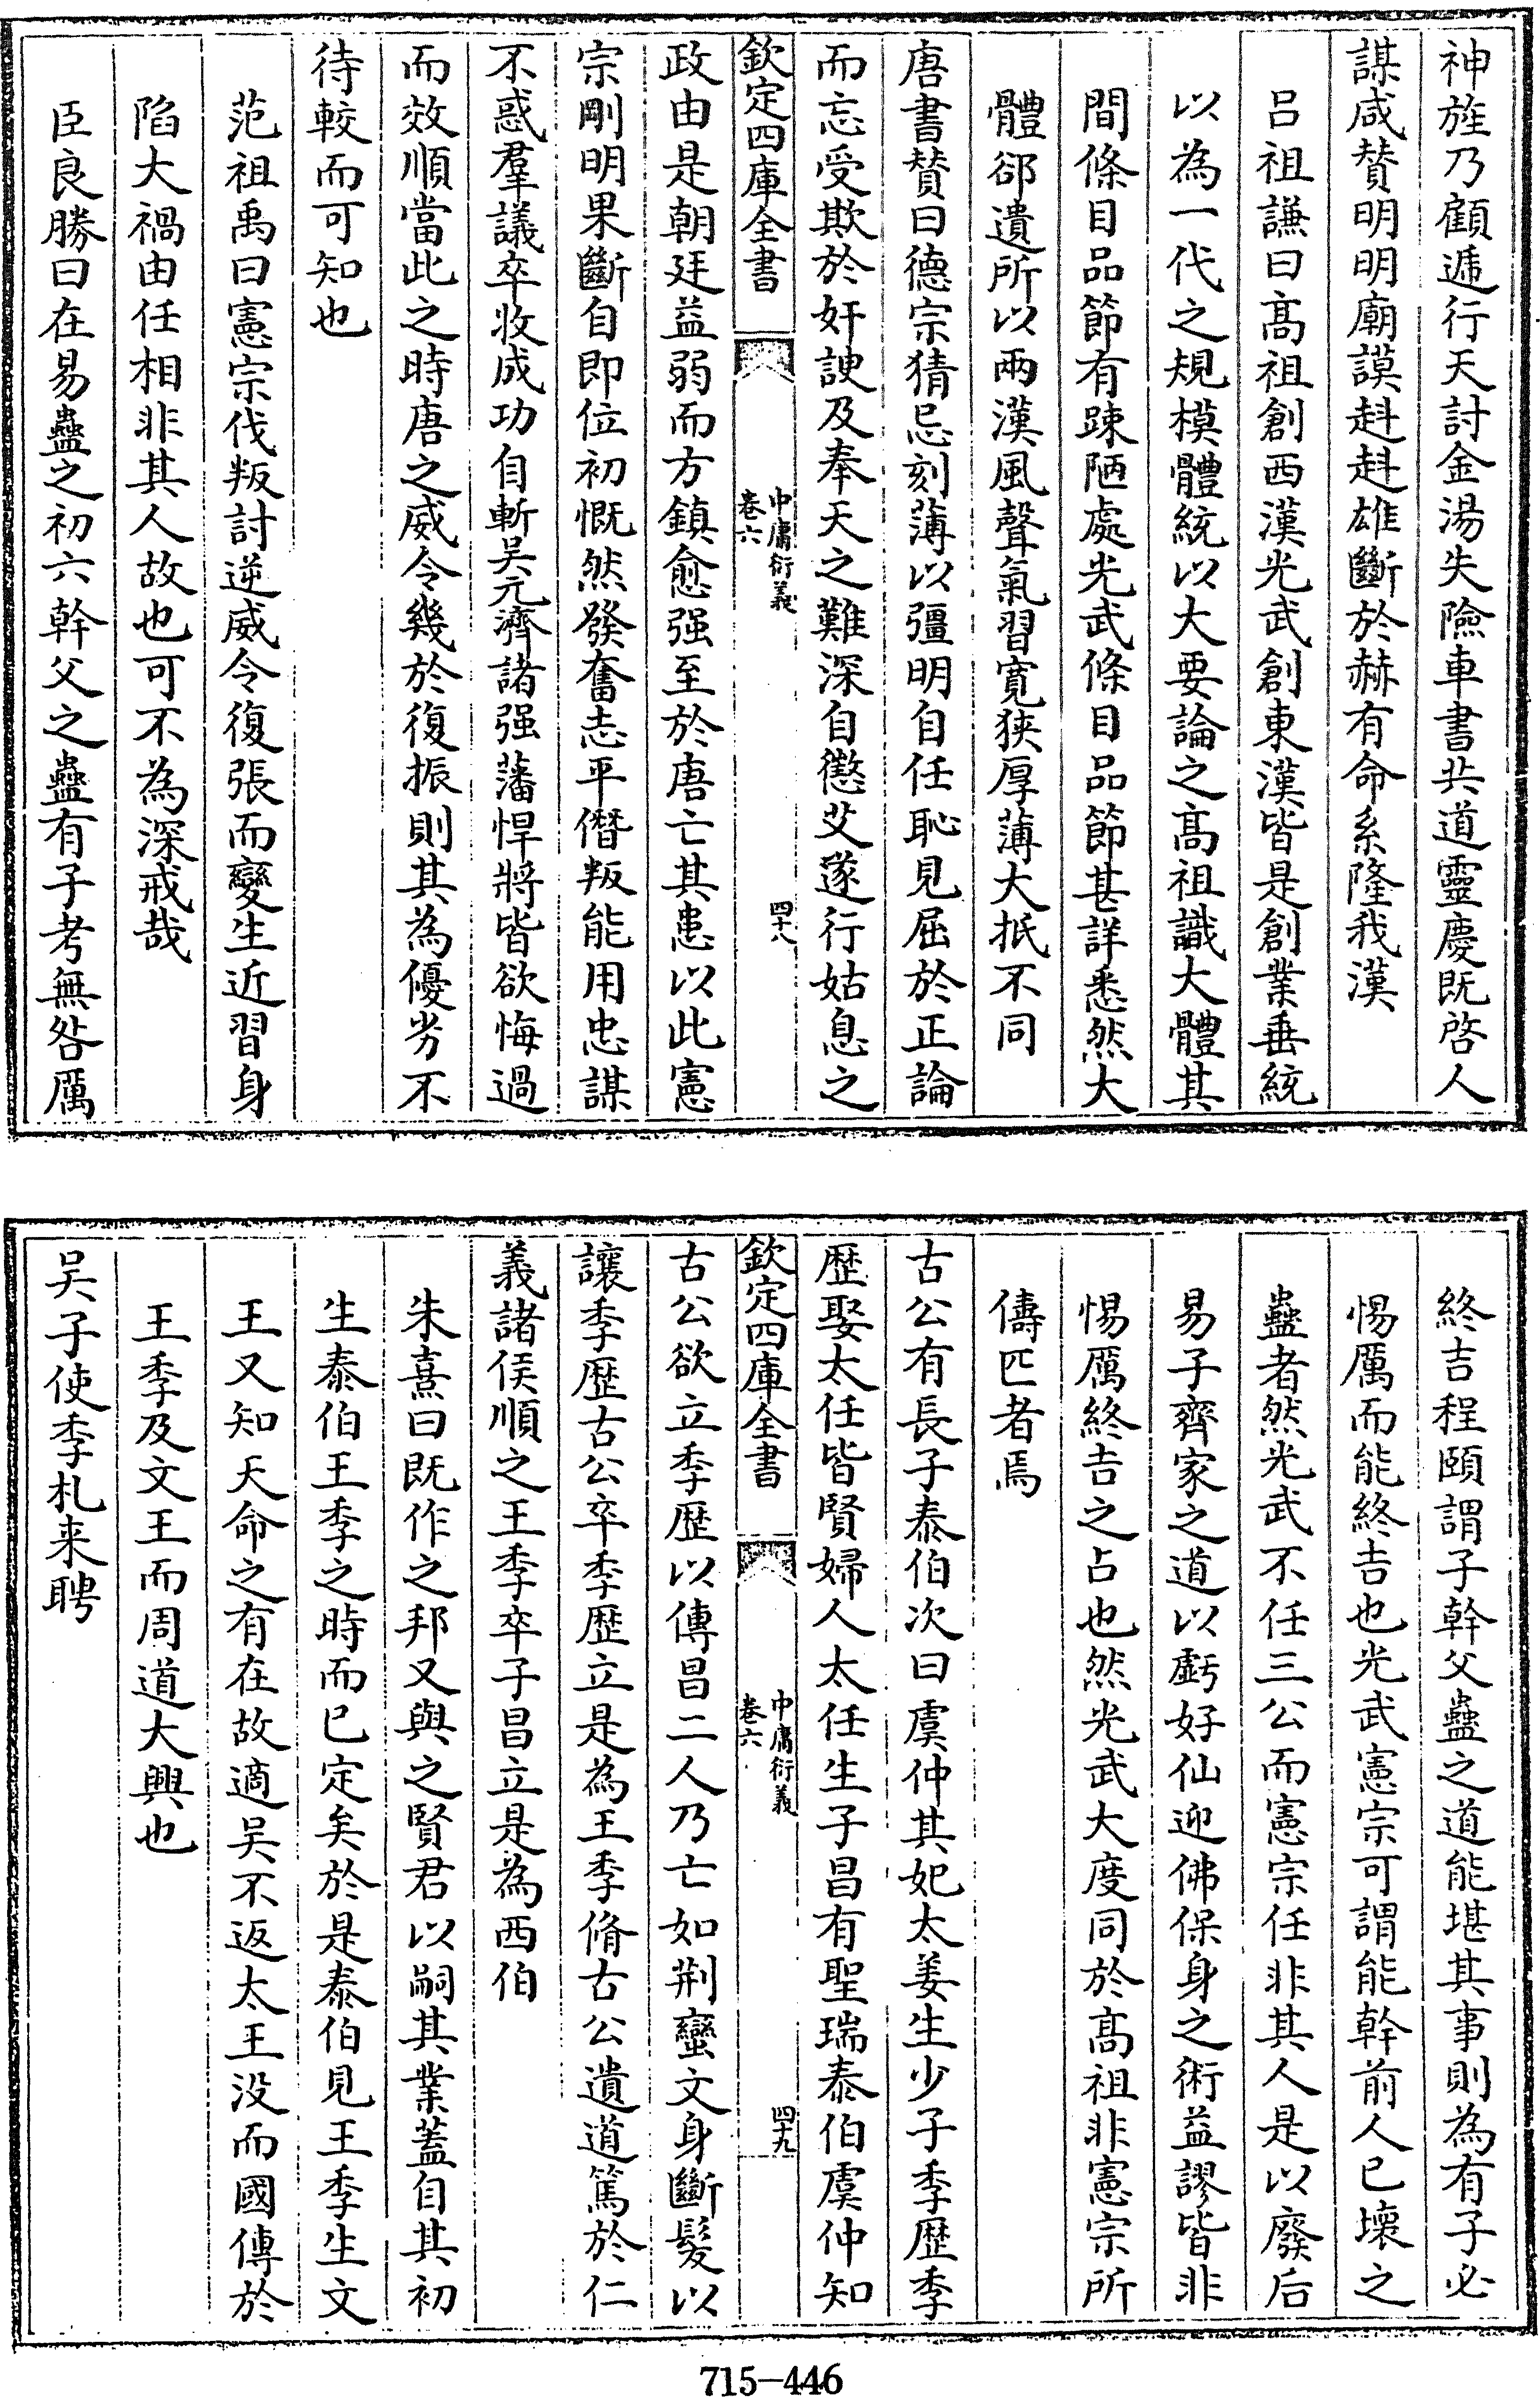 神旌乃顧遞行天討金湯失險車書共道靈慶既啓人
謀咸贊明明廟謨赳赳雄斷於赫有命系隆我漢
吕祖謙曰髙祖創西漢光武創東漢皆是創業垂統
以為一代之規模體統以大要論之髙祖識大體其
間條目品節有踈陋處光武條目品節甚詳悉然大
體郤遺所以兩漢風聲氣習寛狹厚薄大抵不同
唐書贊曰德宗猜忌刻薄以彊明自任恥見屈於正論
而忘受欺於奸諛及奉天之難深自懲艾遂行姑息之
欽定四庫全書
中庸衍義
卷六
四十八
政由是朝廷益弱而方鎮愈强至於唐亡其患以此憲
宗剛明果斷自即位初慨然發奮志平僭叛能用忠謀
不惑羣議卒收成功自斬吴元濟諸强藩悍將皆欲悔過
而效順當此之時唐之威令幾於復振則其為優劣不
待較而可知也
范祖禹曰憲宗伐叛討逆威令復張而變生近習身
陷大禍由任相非其人故也可不為深戒哉
臣良勝曰在易蠱之初六幹父之蠱有子考無咎厲
終吉程頤謂子幹父蠱之道能堪其事則為有子必
惕厲而能終吉也光武憲宗可謂能幹前人已壞之
蠱者然光武不任三公而憲宗任非其人是以廢后
易子齊家之道以虧好仙迎佛保身之術益謬皆非
惕厲終吉之占也然光武大度同於髙祖非憲宗所
儔匹者焉
古公有長子泰伯次曰虞仲其妃太姜生少子季歴季
歴娶太任皆賢婦人太任生子昌有聖瑞泰伯虞仲知
欽定四庫全書
中庸衍義
卷六
四十九
古公欲立季歴以傳昌二人乃亡如荆蠻文身斷髮以
讓季歴古公卒季歴立是為王季脩古公遺道篤於仁
義諸侯順之王季卒子昌立是為西伯
朱熹曰既作之邦又與之賢君以嗣其業葢自其初
生泰伯王季之時而已定矣於是泰伯見王季生文
王又知天命之有在故適吴不返太王没而國傳於
王季及文王而周道大興也
吴子使季札来聘
715-446